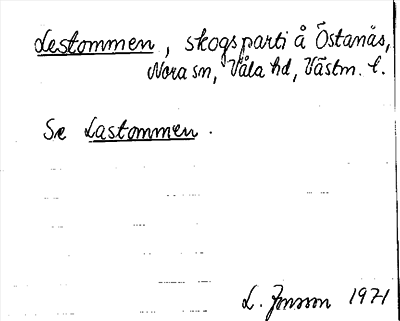 Lestommen, skogsparti å Östanås,
Nora sn, Våla hd, Västm. l.
Se Lastommen.
L. Jonsson 1971